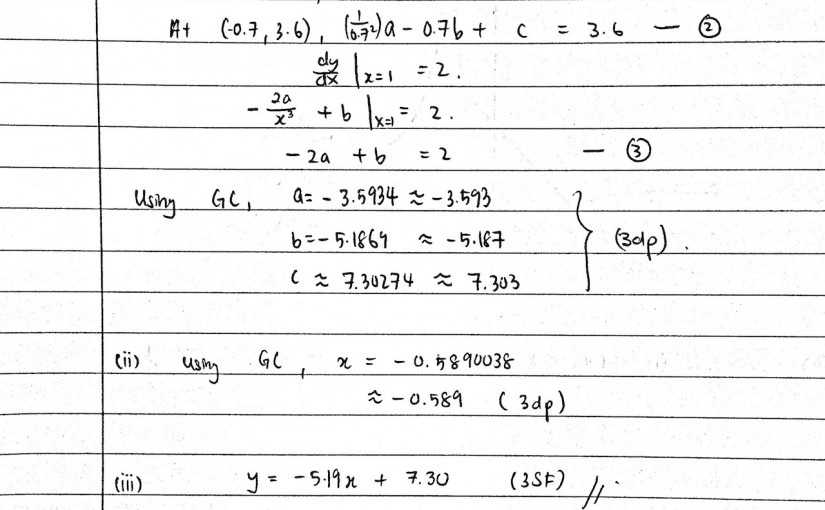 At (-0.7, 3.6), (1/0.7²)a - 0.7b + c = 3.6 — ②
dy/dx |x=1 = 2.
- 2a/x³ + b |x=1 = 2.
- 2a + b = 2 — ③
Using GC, a = - 3.5934 ≈ -3.593
b = -5.1869 ≈ -5.187
c ≈ 7.30274 ≈ 7.303
(3dp).
(ii) Using GC, x = - 0.5890038
≈ -0.589 (3dp)
(iii) y = -5.19x + 7.30 (3SF) //.